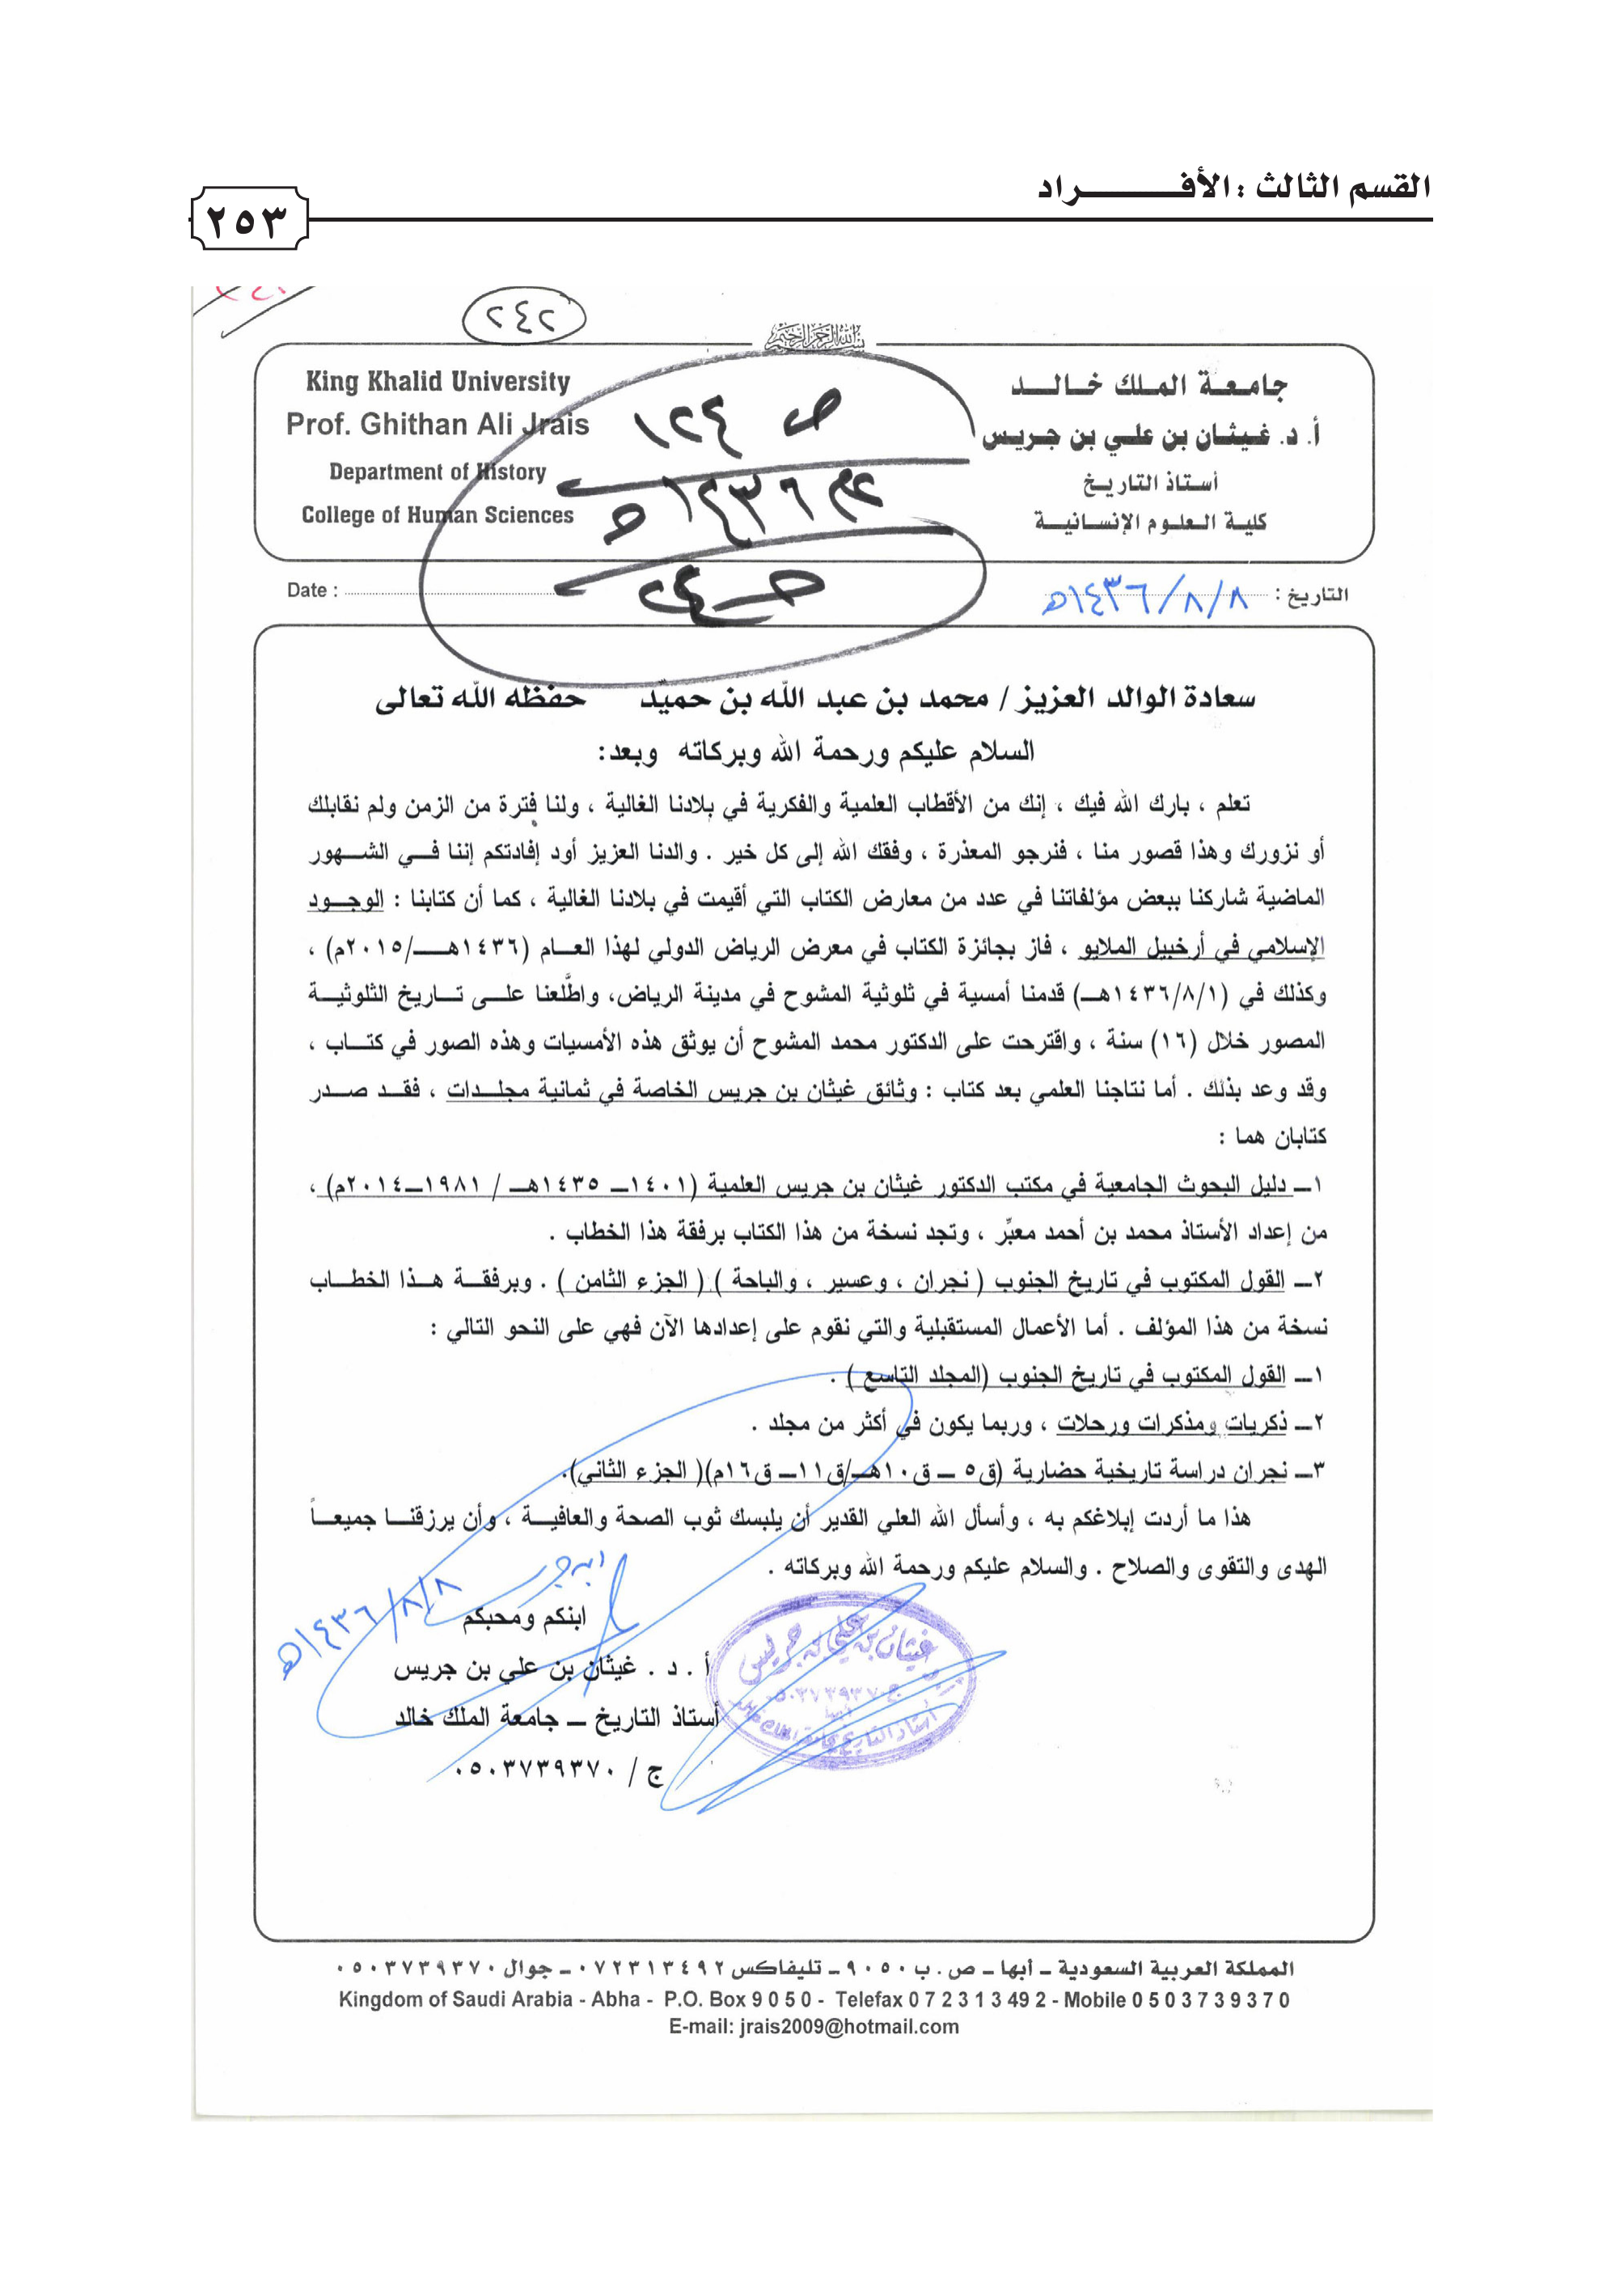 القسم الثالث : الأفـــــــراد
٢٥٣
٢٤٢
بسم الله الرحمن الرحيم
جامعة الملك خالد
أ. د. غيثان بن علي بن جريس
أستاذ التاريخ
كلية العلوم الإنسانية
King Khalid University
Prof. Ghithan Ali Jrais
Department of History
College of Human Sciences
ص ١٢٤
١٤٣٦هـ
التاريخ : ١٤٣٦/٨/٨هـ
Date :
سعادة الوالد العزيز / محمد بن عبد الله بن حميّد حفظه الله تعالى
السلام عليكم ورحمة الله وبركاته وبعد:
تعلم ، بارك الله فيك ، إنك من الأقطاب العلمية والفكرية في بلادنا الغالية ، ولنا فترة من الزمن ولم نقابلك
أو نزورك وهذا قصور منا ، فنرجو المعذرة ، وفقك الله إلى كل خير . والدنا العزيز أود إفادتكم إننا فـي الشـهور
الماضية شاركنا ببعض مؤلفاتنا في عدد من معارض الكتاب التي أقيمت في بلادنا الغالية ، كما أن كتابنا : الوجـود
الإسلامي في أرخبيل الملايو ، فاز بجائزة الكتاب في معرض الرياض الدولي لهذا العـام (١٤٣٦هـــ/٢٠١٥م) ،
وكذلك في (١٤٣٦/٨/١هـ) قدمنا أمسية في ثلوثية المشوح في مدينة الرياض، واطَّلعنا علـى تـاريخ الثلوثيـة
المصور خلال (١٦) سنة ، واقترحت على الدكتور محمد المشوح أن يوثق هذه الأمسيات وهذه الصور في كتـاب ،
وقد وعد بذلك . أما نتاجنا العلمي بعد كتاب : وثائق غيثان بن جريس الخاصة في ثمانية مجلـدات ، فقـد صـدر
كتابان هما :
١ــ دليل البحوث الجامعية في مكتب الدكتور غيثان بن جريس العلمية (١٤٠١ــ ١٤٣٥هـ / ١٩٨١ــ٢٠١٤م) ،
من إعداد الأستاذ محمد بن أحمد معبِّر ، وتجد نسخة من هذا الكتاب برفقة هذا الخطاب .
٢ــ القول المكتوب في تاريخ الجنوب ( نجران ، وعسير ، والباحة ) ( الجزء الثامن ) . وبرفقـة هـذا الخطـاب
نسخة من هذا المؤلف . أما الأعمال المستقبلية والتي نقوم على إعدادها الآن فهي على النحو التالي :
١ــ القول المكتوب في تاريخ الجنوب (المجلد التاسع ) .
٢ــ ذكريات ومذكرات ورحلات ، وربما يكون في أكثر من مجلد .
٣ــ نجران دراسة تاريخية حضارية (ق٥ ــ ق١٠هـ/ق١١ــ ق١٦م)( الجزء الثاني).
هذا ما أردت إبلاغكم به ، وأسأل الله العلي القدير أن يلبسك ثوب الصحة والعافيـة ، وأن يرزقنـا جميعـاً
الهدى والتقوى والصلاح . والسلام عليكم ورحمة الله وبركاته .
ابن جريس
١٤٣٦/٨/٨هـ
ابنكم ومحبكم
أ . د . غيثان بن علي بن جريس
أستاذ التاريخ ــ جامعة الملك خالد
ج / ٠٥٠٣٧٣٩٣٧٠
غيثان بن علي بن جريس
ج ٠٥٠٣٧٣٩٣٧٠
المملكة العربية السعودية ـ أبها ـ ص . ب ٩٠٥٠ ـ تليفاكس ٠٧٢٣١٣٤٩٢ ـ جوال ٠٥٠٣٧٣٩٣٧٠
Kingdom of Saudi Arabia - Abha - P.O. Box 9 0 5 0 - Telefax 0 7 2 3 1 3 49 2 - Mobile 0 5 0 3 7 3 9 3 7 0
E-mail: jrais2009@hotmail.com